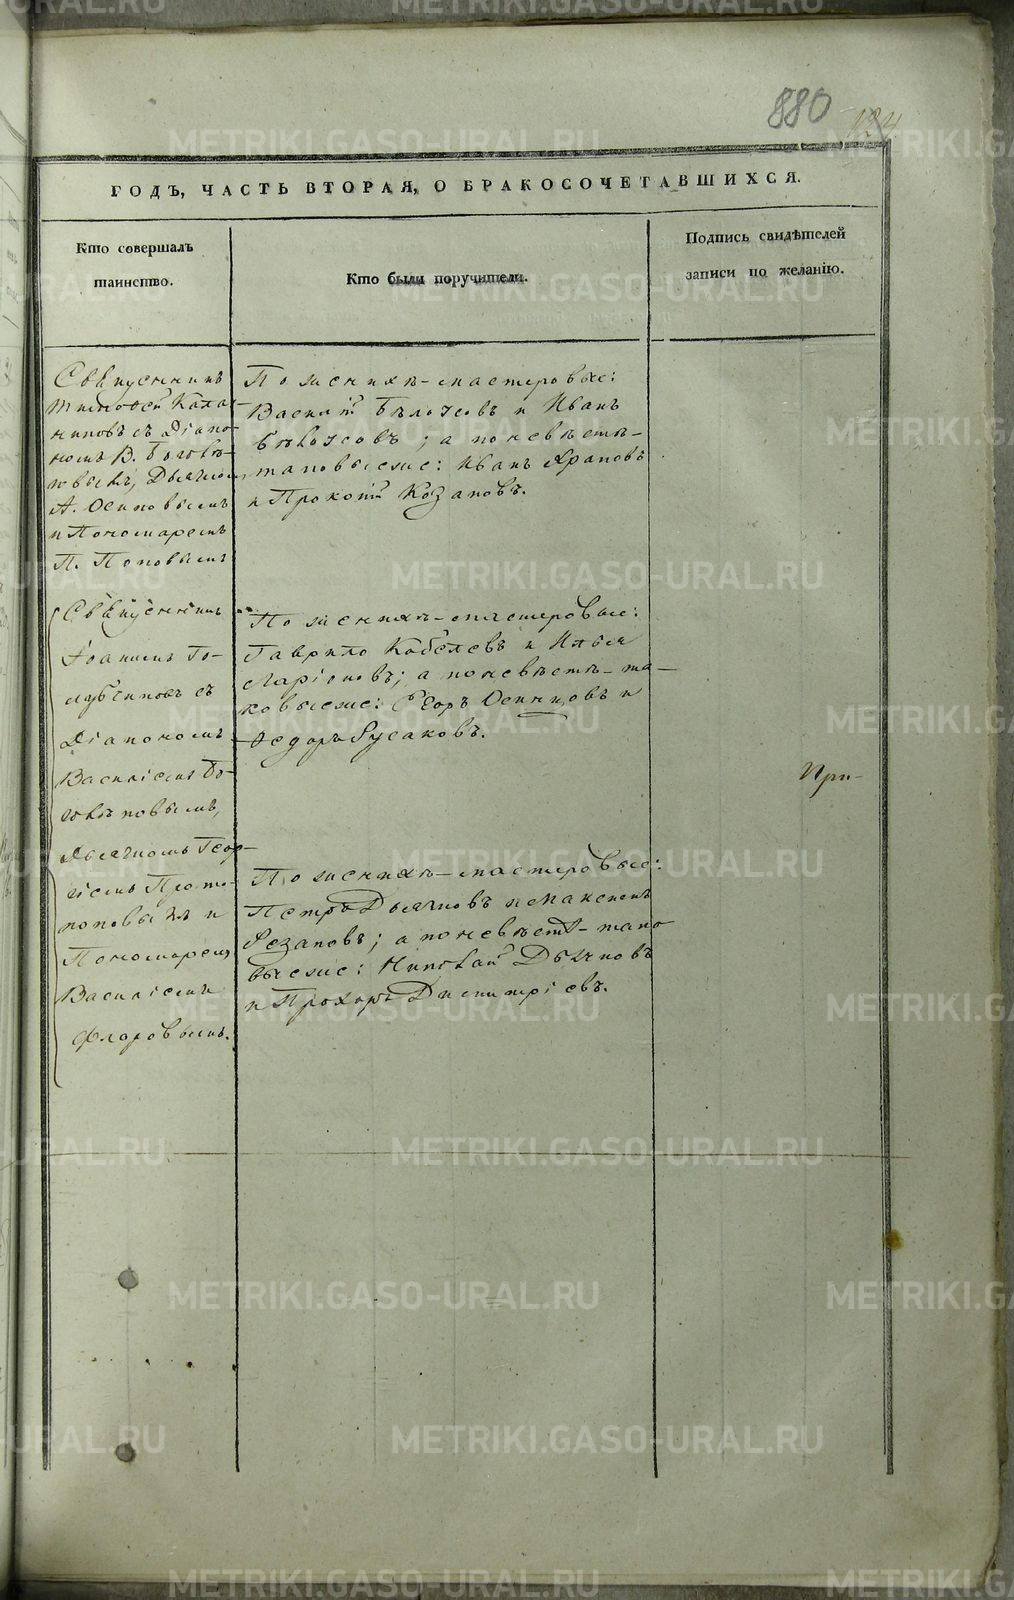 880
ГОДЪ, ЧАСТЬ ВТОРАЯ, О БРАКОСОЧЕТАВШИХСЯ.
Кто совершалъ
таинство.
Кто были поручители.
Подпись свидѣтелей
записи по желанію.
Свѣщенникъ
Тимофей Кала-
чниковъ съ Діако-
номъ В. Боголѣ-
повымъ, Дьячкомъ
А. Осиповымъ
и Пономаремъ
П. Поповымъ
По женихѣ-мастеровые:
Василій Бѣлоусовъ и Иванъ
Бѣлоусовъ; а по невѣстѣ-
таковыеже: Иванъ Храповъ
и Прокопій Козаповъ.
Свѣщенникъ
Іоаннъ Го-
лубчиковъ съ
Діакономъ
Василіемъ Бо-
голѣповымъ,
Дьячкомъ Геор-
гіемъ Прото-
поповымъ и
Пономаремъ
Василіемъ
Флоровымъ.
По женихѣ-мастеровые:
Гаврило Кобелевъ и Илья
Ларіоновъ; а по невѣстѣ-та-
ковыеже: Егоръ Осинцовъ и
Ѳедоръ Русаковъ.
При-
По женихѣ-мастеровые:
Петръ Дьячковъ и Максимъ
Резановъ; а по невѣстѣ-тако
выеже: Николай Дьячковъ
и Прохоръ Димитріевъ.
METRIKI.GASO-URAL.RU